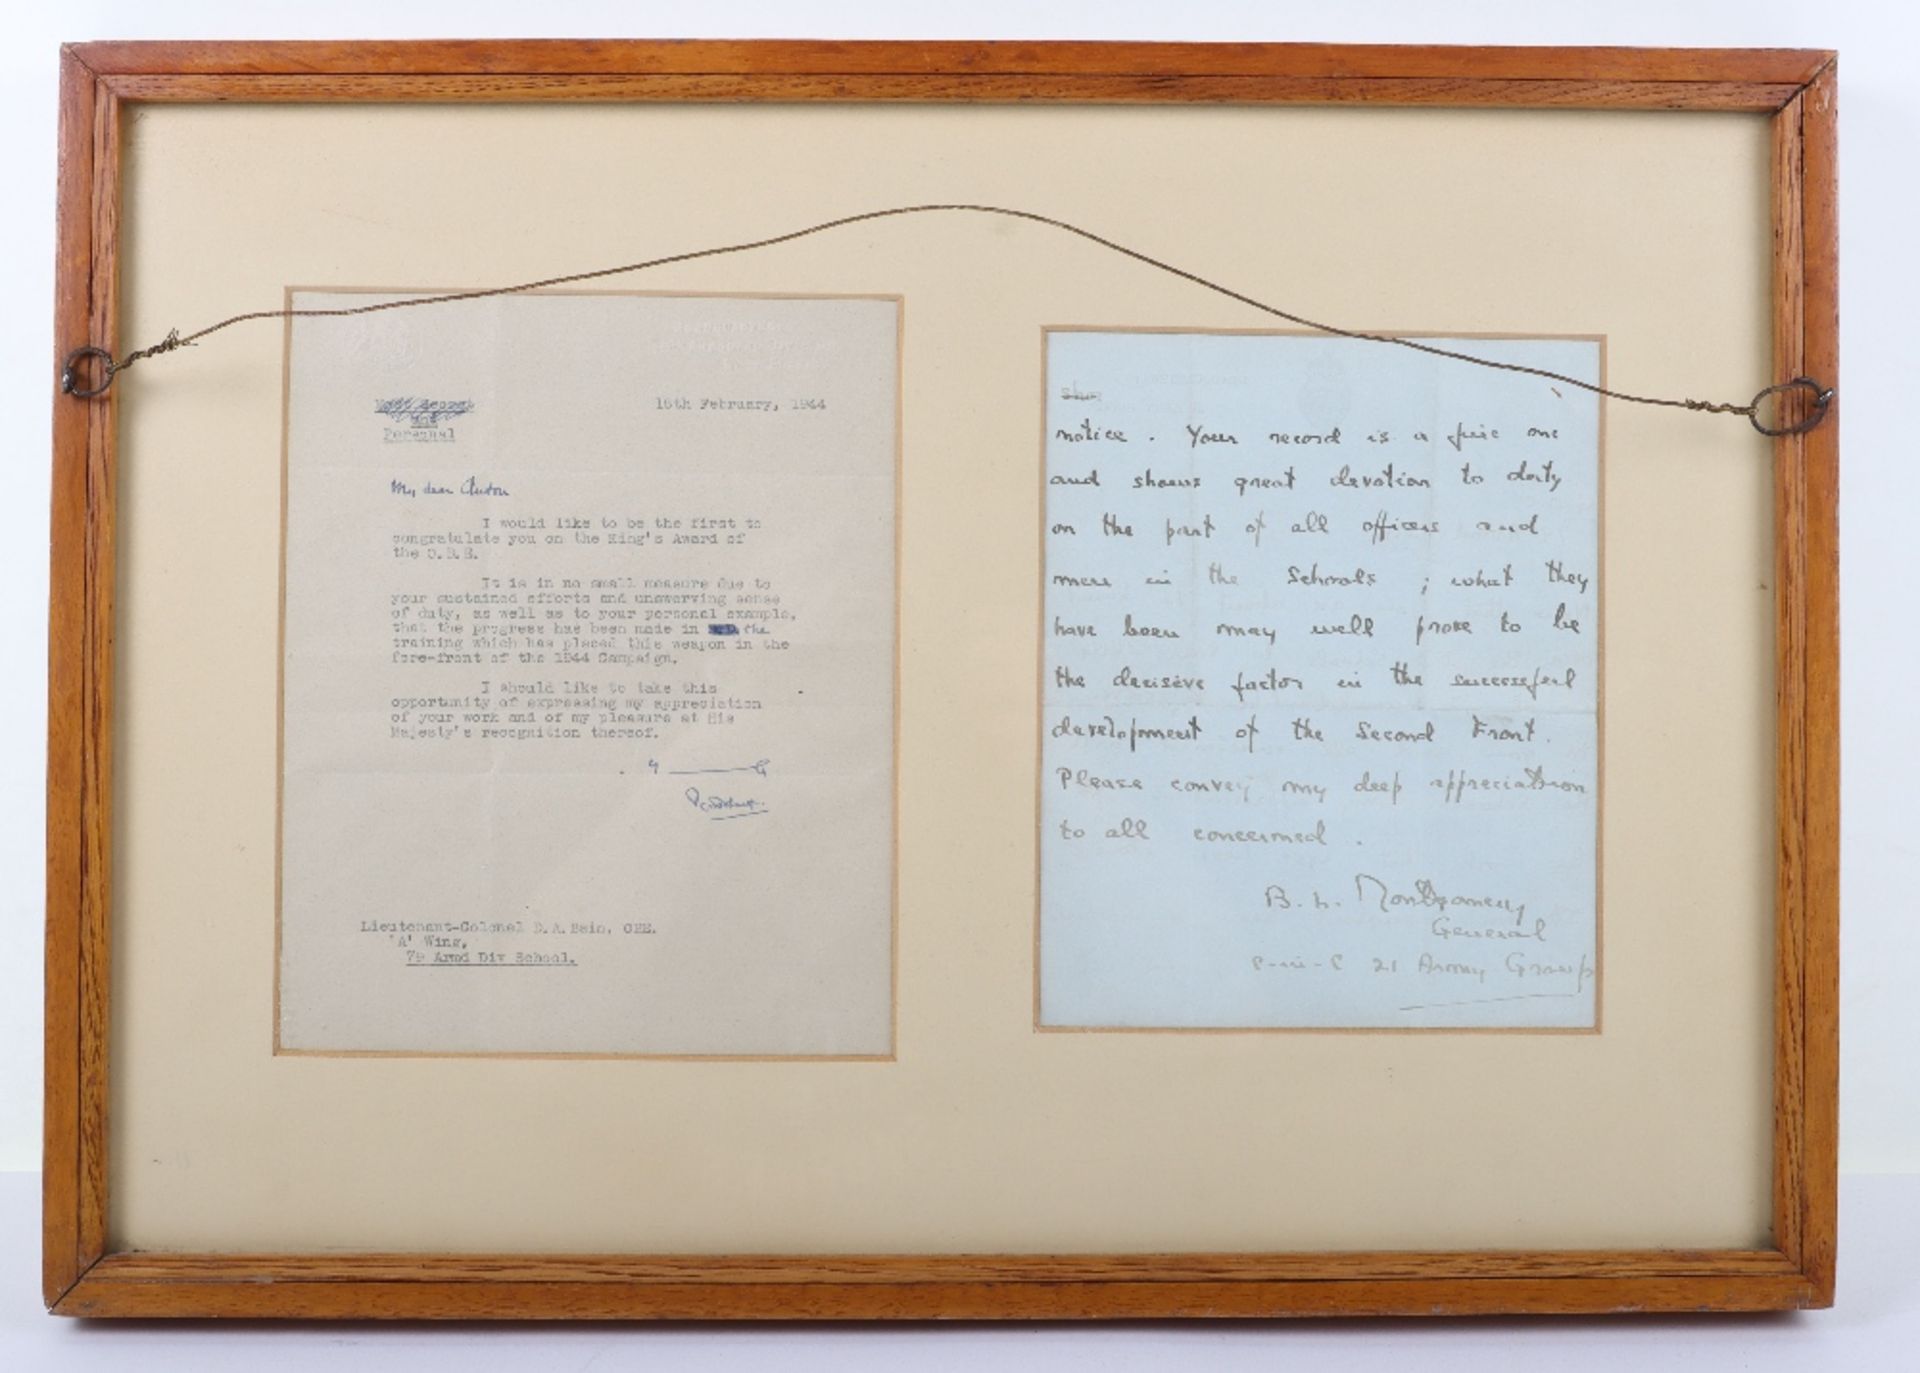 Most Secret
and
Personal
16th February, 1944
My dear
I would like to be the first to
congratulate you on the King's Award of
the O.B.E.
It is in no small measure due to
your sustained efforts and unswerving sense
of duty, as well as to your personal example,
that the progress has been made in the
training which has placed this weapon in the
fore-front of the 1944 Campaign.
I should like to take this
opportunity of expressing my appreciation
of your work and of my pleasure at His
Majesty's recognition thereof.
Lieutenant-Colonel D.A. Bain, OBE.
'A' Wing,
79 Armd Div School.
notice. Your record is a fine one
and shows great devotion to duty
on the part of all officers and
men in the Schools; what they
have been may well prove to be
the decisive factor in the successful
development of the Second Front.
Please convey my deep appreciation
to all concerned.
B. L. Montgomery
General
C-in-C 21 Army Group